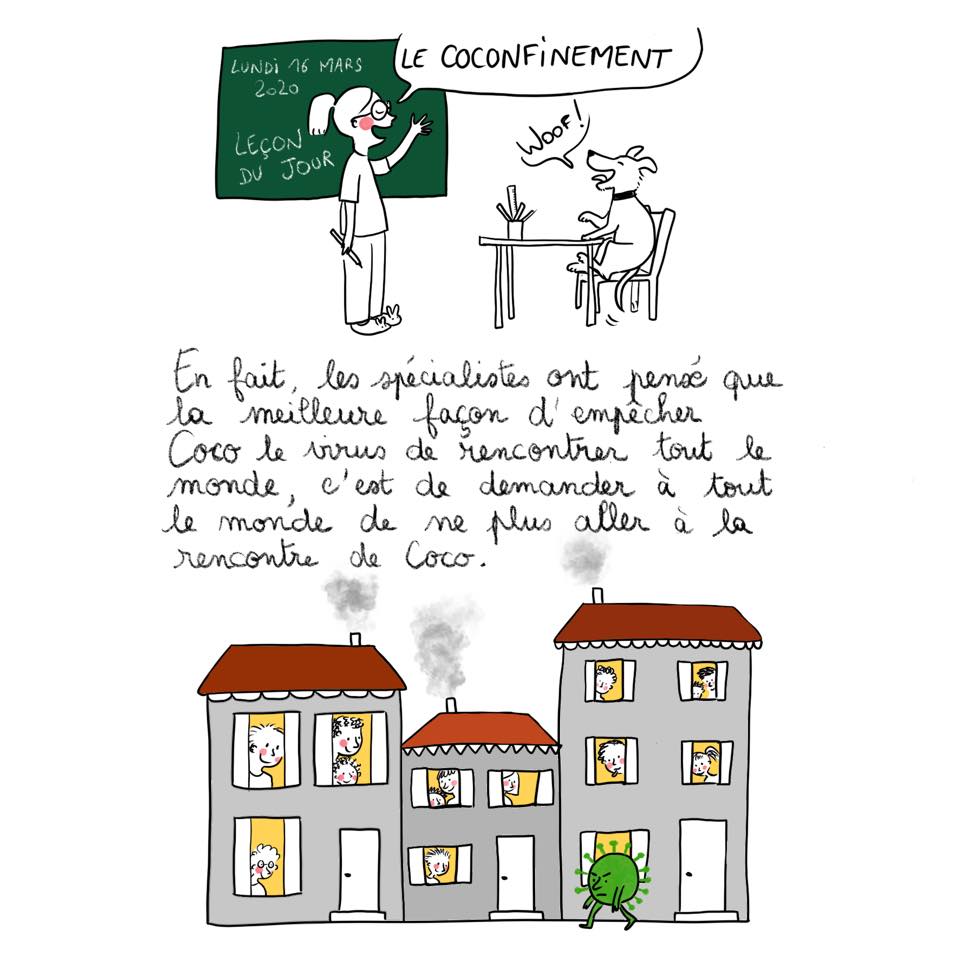 LUNDI 16 MARS
2020
LEÇON
DU JOUR
LE COCONFINEMENT
WOOF!
En fait, les spécialistes ont pensé que
la meilleure façon d'empêcher
Coco le virus de rencontrer tout le
monde, c'est de demander à tout
le monde de ne plus aller à la
rencontre de Coco.